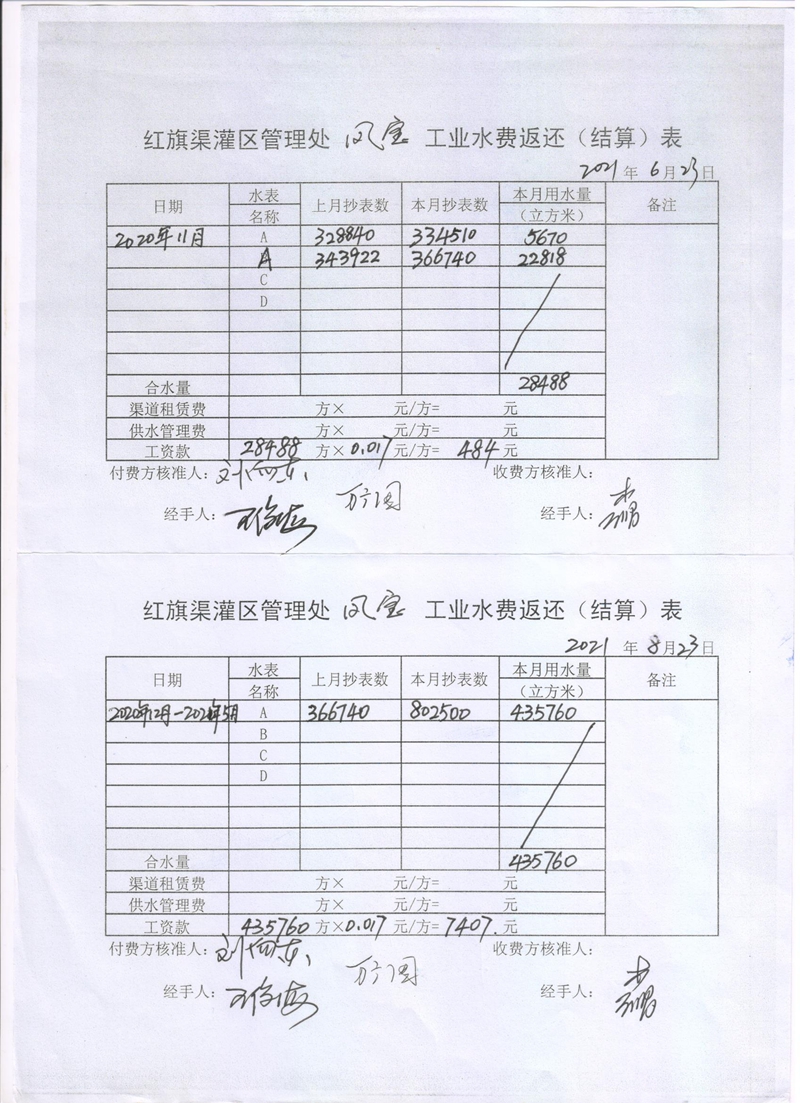 红旗渠灌区管理处 凤宝 工业水费返还（结算）表
2021 年 6 月 23 日
日期 水表名称 上月抄表数 本月抄表数 本月用水量（立方米） 备注
2020年11月 A 328840 334510 5670
A 343922 366740 22818
C
D
合水量 28488
渠道租赁费 方× 元/方= 元
供水管理费 方× 元/方= 元
工资款 28488 方× 0.017 元/方= 484 元
付费方核准人： 收费方核准人：
经手人： 经手人：
红旗渠灌区管理处 凤宝 工业水费返还（结算）表
2021 年 8 月 23 日
日期 水表名称 上月抄表数 本月抄表数 本月用水量（立方米） 备注
2020年12月-2021年5月 A 366740 802500 435760
B
C
D
合水量 435760
渠道租赁费 方× 元/方= 元
供水管理费 方× 元/方= 元
工资款 435760 方× 0.017 元/方= 7407. 元
付费方核准人： 收费方核准人：
经手人： 经手人：